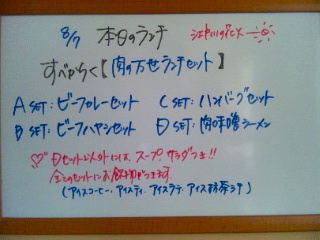 8/7 本日のランチ
江戸川の花火
すべからく【肉の万世ランチセット】
A SET: ビーフカレーセット
C SET: ハンバーグセット
B SET: ビーフハヤシセット
D SET: 肉味噌ラーメン
Dセット以外には、スープ、サラダつき!!
全てのセットにお飲物がつきます
(アイスコーヒー、アイスティ、アイスラテ、アイス抹茶ラテ)